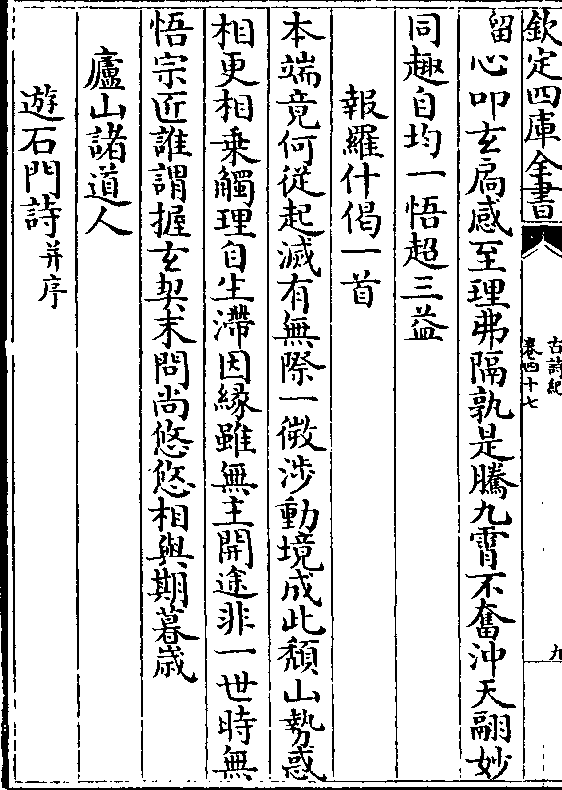 欽定四庫全書
古詩紀
卷四十七
九
留心叩玄扄感至理弗隔孰是騰九霄不奮沖天翮妙
同趣自均一悟超三益
報羅什偈一首
本端竟何從起滅有無際一微涉動境成此頹山勢惑
相更相乗觸理自生滯因縁雖無主開途非一世時無
悟宗匠誰謂握玄契末問尚悠悠相與期暮歳
廬山諸道人
遊石門詩并序